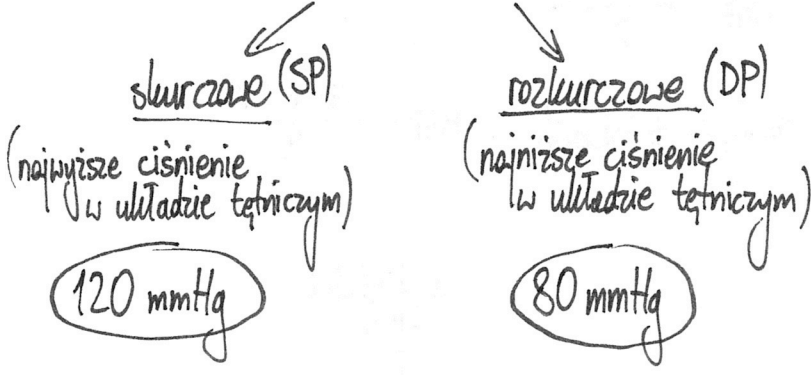 skurczowe (SP)
(najwyższe ciśnienie
w układzie tętniczym)
120 mmHg
rozkurczowe (DP)
(najniższe ciśnienie
w układzie tętniczym)
80 mmHg